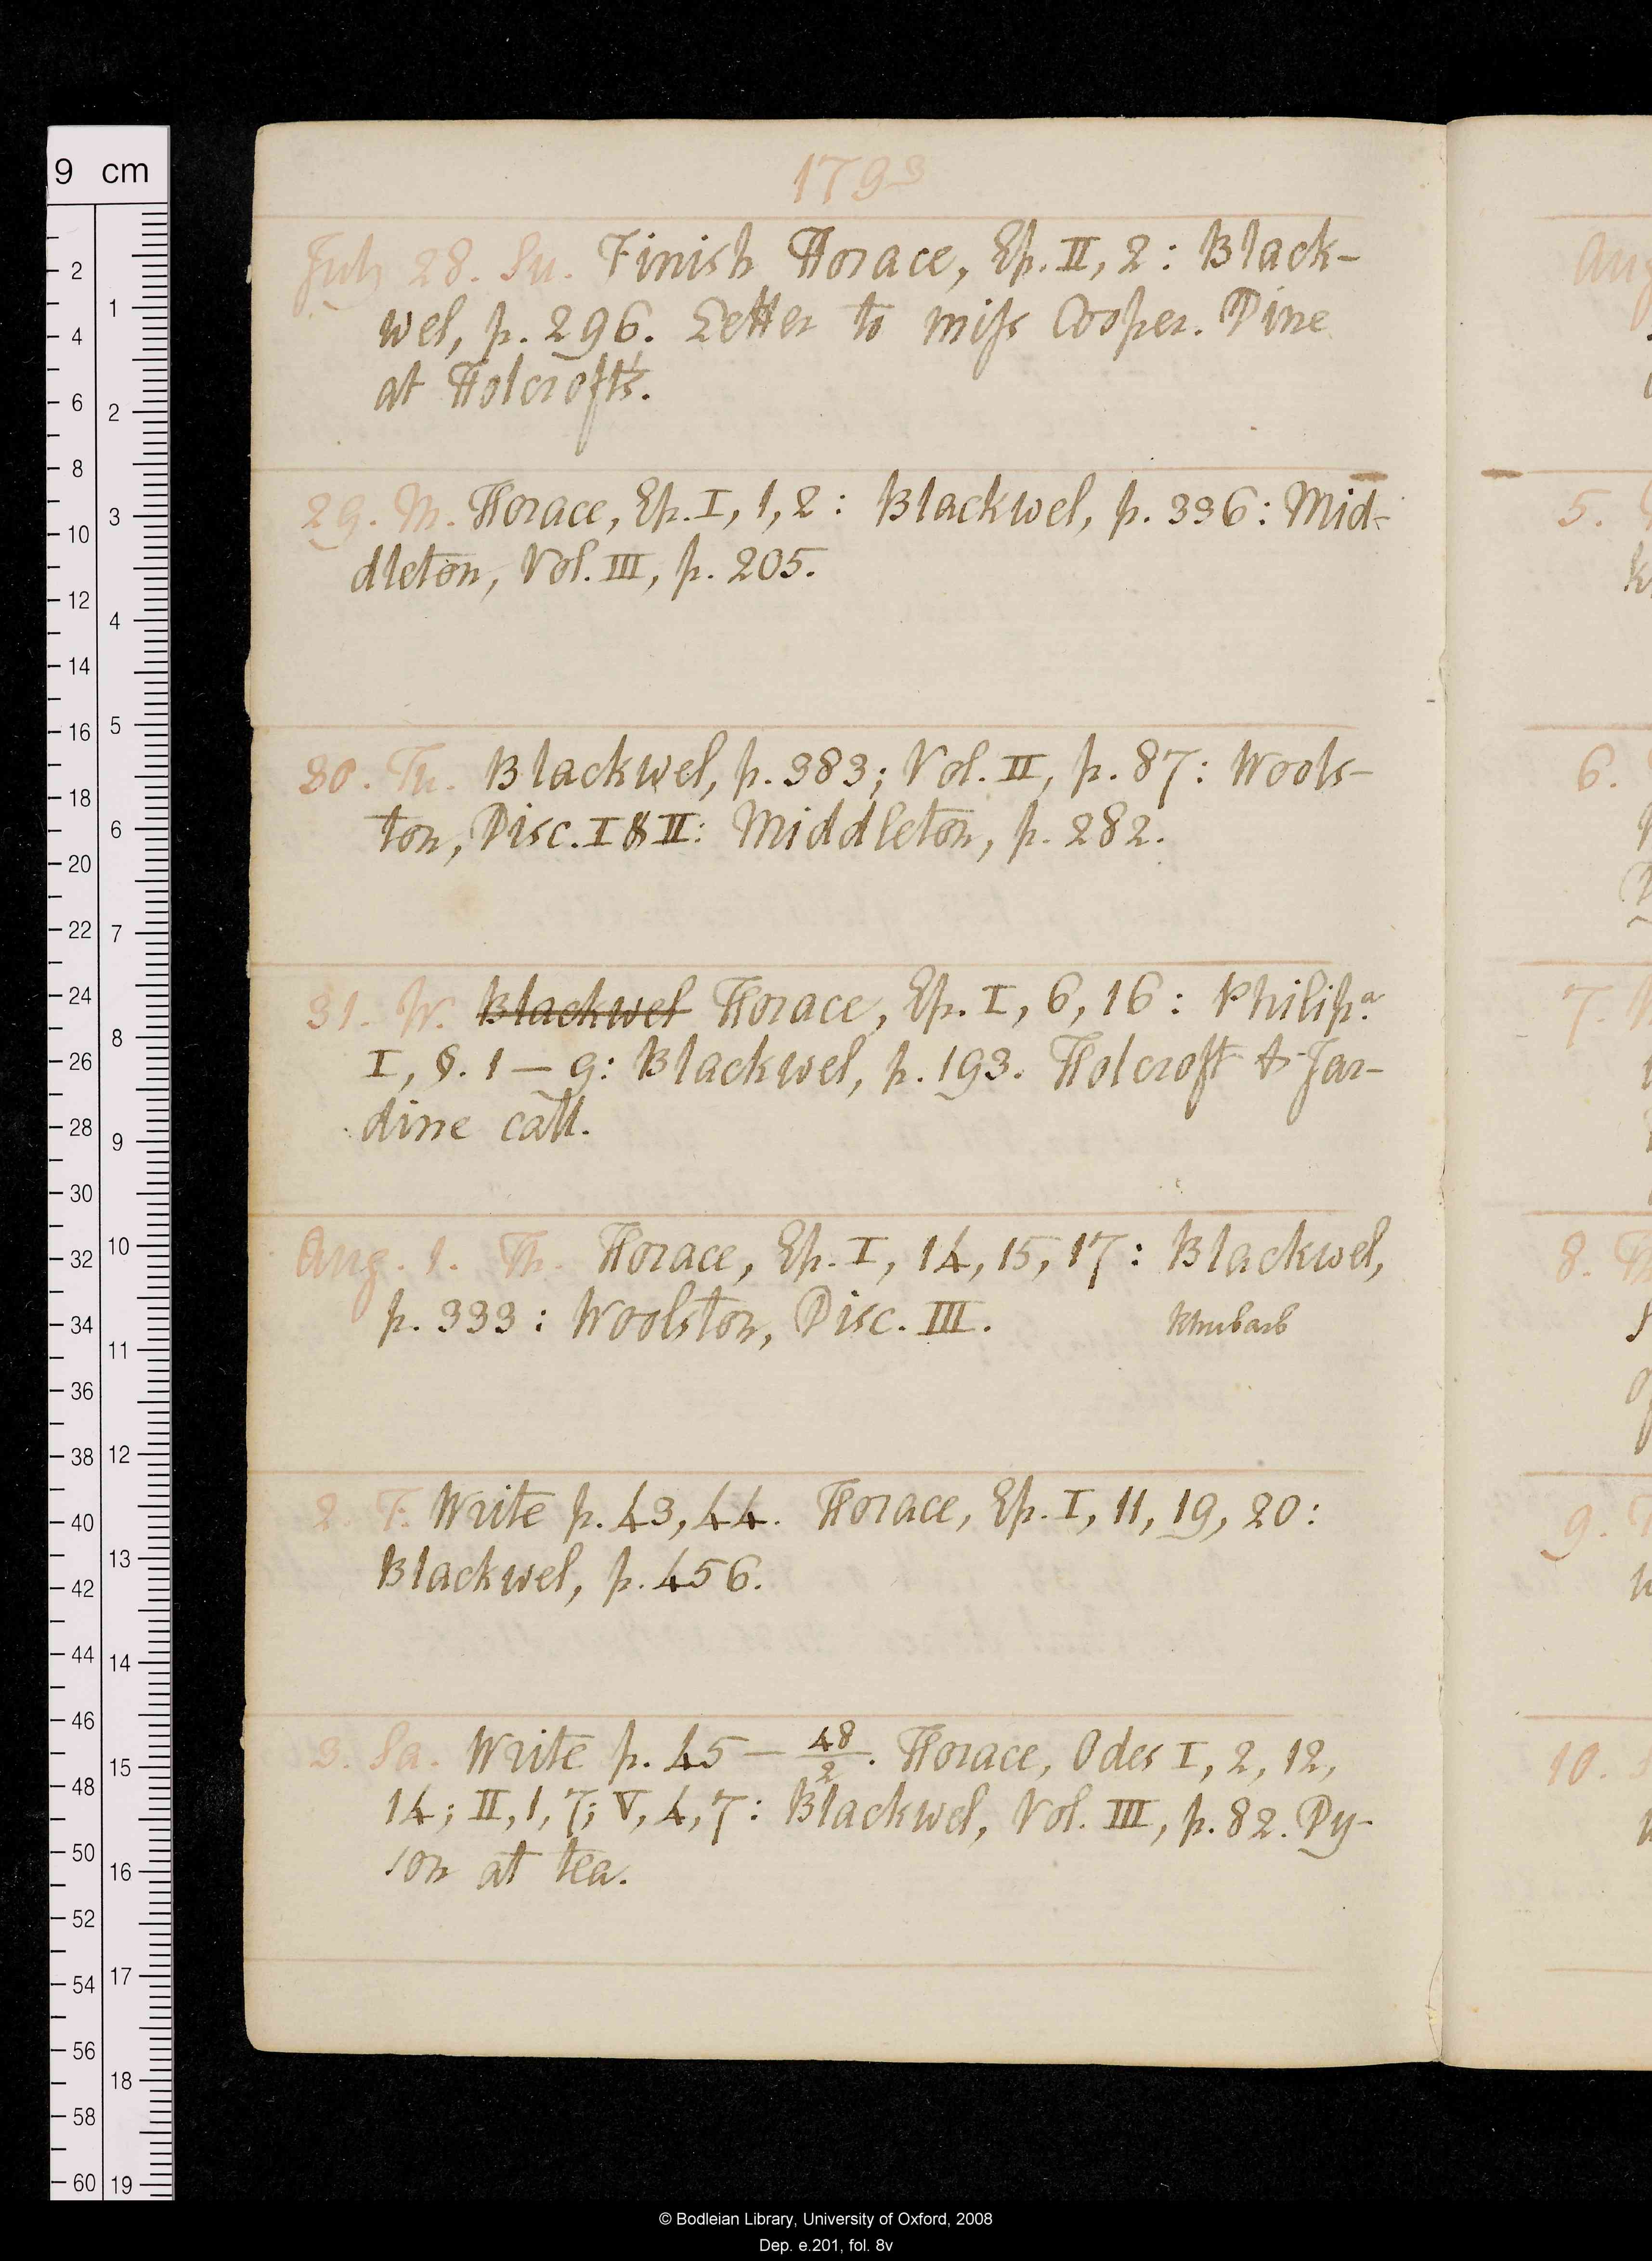 1793
July 28. Su. Finish Horace, Ep. II, 2: Black-
wel, p. 296. Letter to miss Cooper. Dine
at Holcroft's.
29. M. Horace, Ep. I, 1, 2: Blackwel, p. 336: Mid-
dleton, Vol. III, p. 205.
30. Tu. Blackwel, p. 383; Vol. II, p. 87: Wools-
ton, Disc. I & II: Middleton, p. 282.
31. W. Blackwel Horace, Ep. I, 6, 16: Philipa.
I, §. 1 — 9: Blackwel, p. 193. Holcroft & Jar-
dine call.
Aug. 1. Th. Horace, Ep. I, 14, 15, 17: Blackwel,
p. 333: Woolston, Disc. III. Rhubarb
2. F. Write p. 43, 44. Horace, Ep. I, 11, 19, 20:
Blackwel, p. 456.
3. Sa. Write p. 45 — 48/2. Horace, Odes I, 2, 12,
14; II, 1, 7; V, 4, 7: Blackwel, Vol. III, p. 82. Dy-
son at tea.
Aug
5.
6.
7.
8.
9.
10.
9 cm
2
4
6
8
10
12
14
16
18
20
22
24
26
28
30
32
34
36
38
40
42
44
46
48
50
52
54
56
58
60
1
2
3
4
5
6
7
8
9
10
11
12
13
14
15
16
17
18
19
© Bodleian Library, University of Oxford, 2008
Dep. e.201, fol. 8v